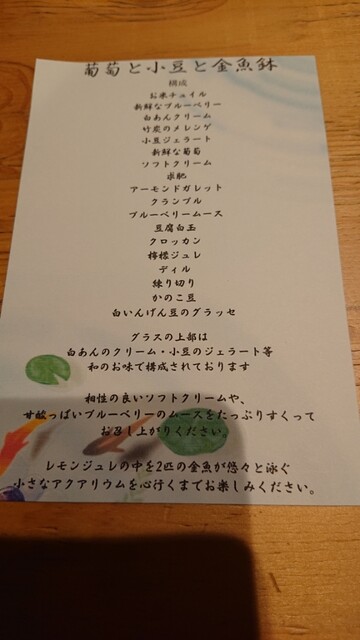 葡萄と小豆と金魚鉢
構成
お米チュイル
新鮮なブルーベリー
白あんクリーム
竹炭のメレンゲ
小豆ジェラート
新鮮な葡萄
ソフトクリーム
求肥
アーモンドガレット
クランブル
ブルーベリームース
豆腐白玉
クロッカン
檸檬ジュレ
ディル
練り切り
かのこ豆
白いんげん豆のグラッセ
グラスの上部は
白あんのクリーム・小豆のジェラート等
和のお味で構成されております
相性の良いソフトクリームや、
甘酸っぱいブルーベリーのムースをたっぷりすくって
お召し上がりください。
レモンジュレの中を2匹の金魚が悠々と泳ぐ
小さなアクアリウムを心行くまでお楽しみください。